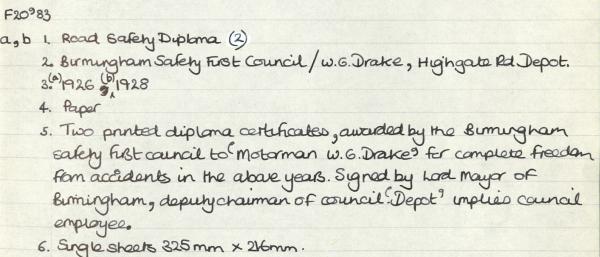 F20983
a,b 1. Road Safety Diploma (2)
2. Birmingham Safety First Council / W.G. Drake, Highgate Rd Depot.
3. (a) 1926 (b) 1928
4. Paper
5. Two printed diploma certificates, awarded by the Birmingham
safety first council to 'Motorman W.G. Drake' for complete freedom
from accidents in the above years. Signed by Lord Mayor of
Birmingham, deputy chairman of council. 'Depot' implies council
employee.
6. Single sheets 325mm x 216mm.